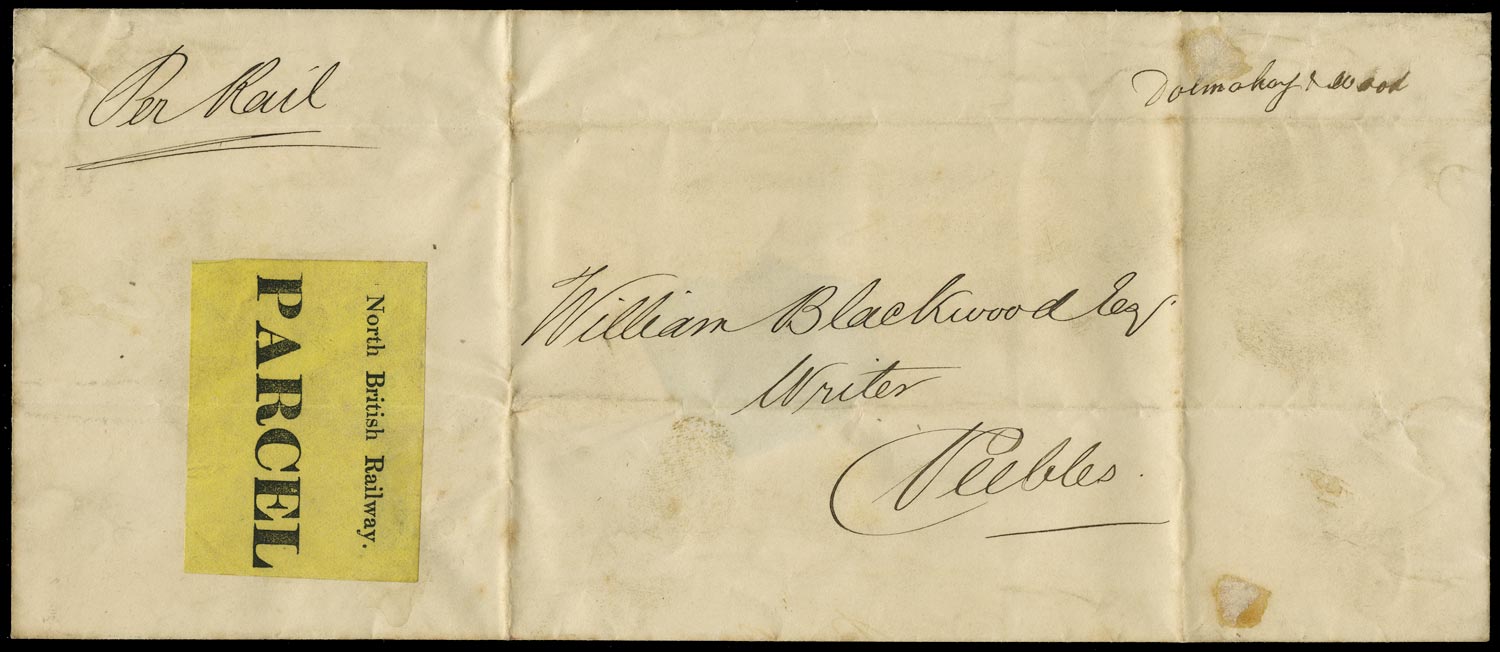 Per Rail
Dalmahoy & Wood
North British Railway.
PARCEL
William Blackwood Esqr.
Writer
Peebles.